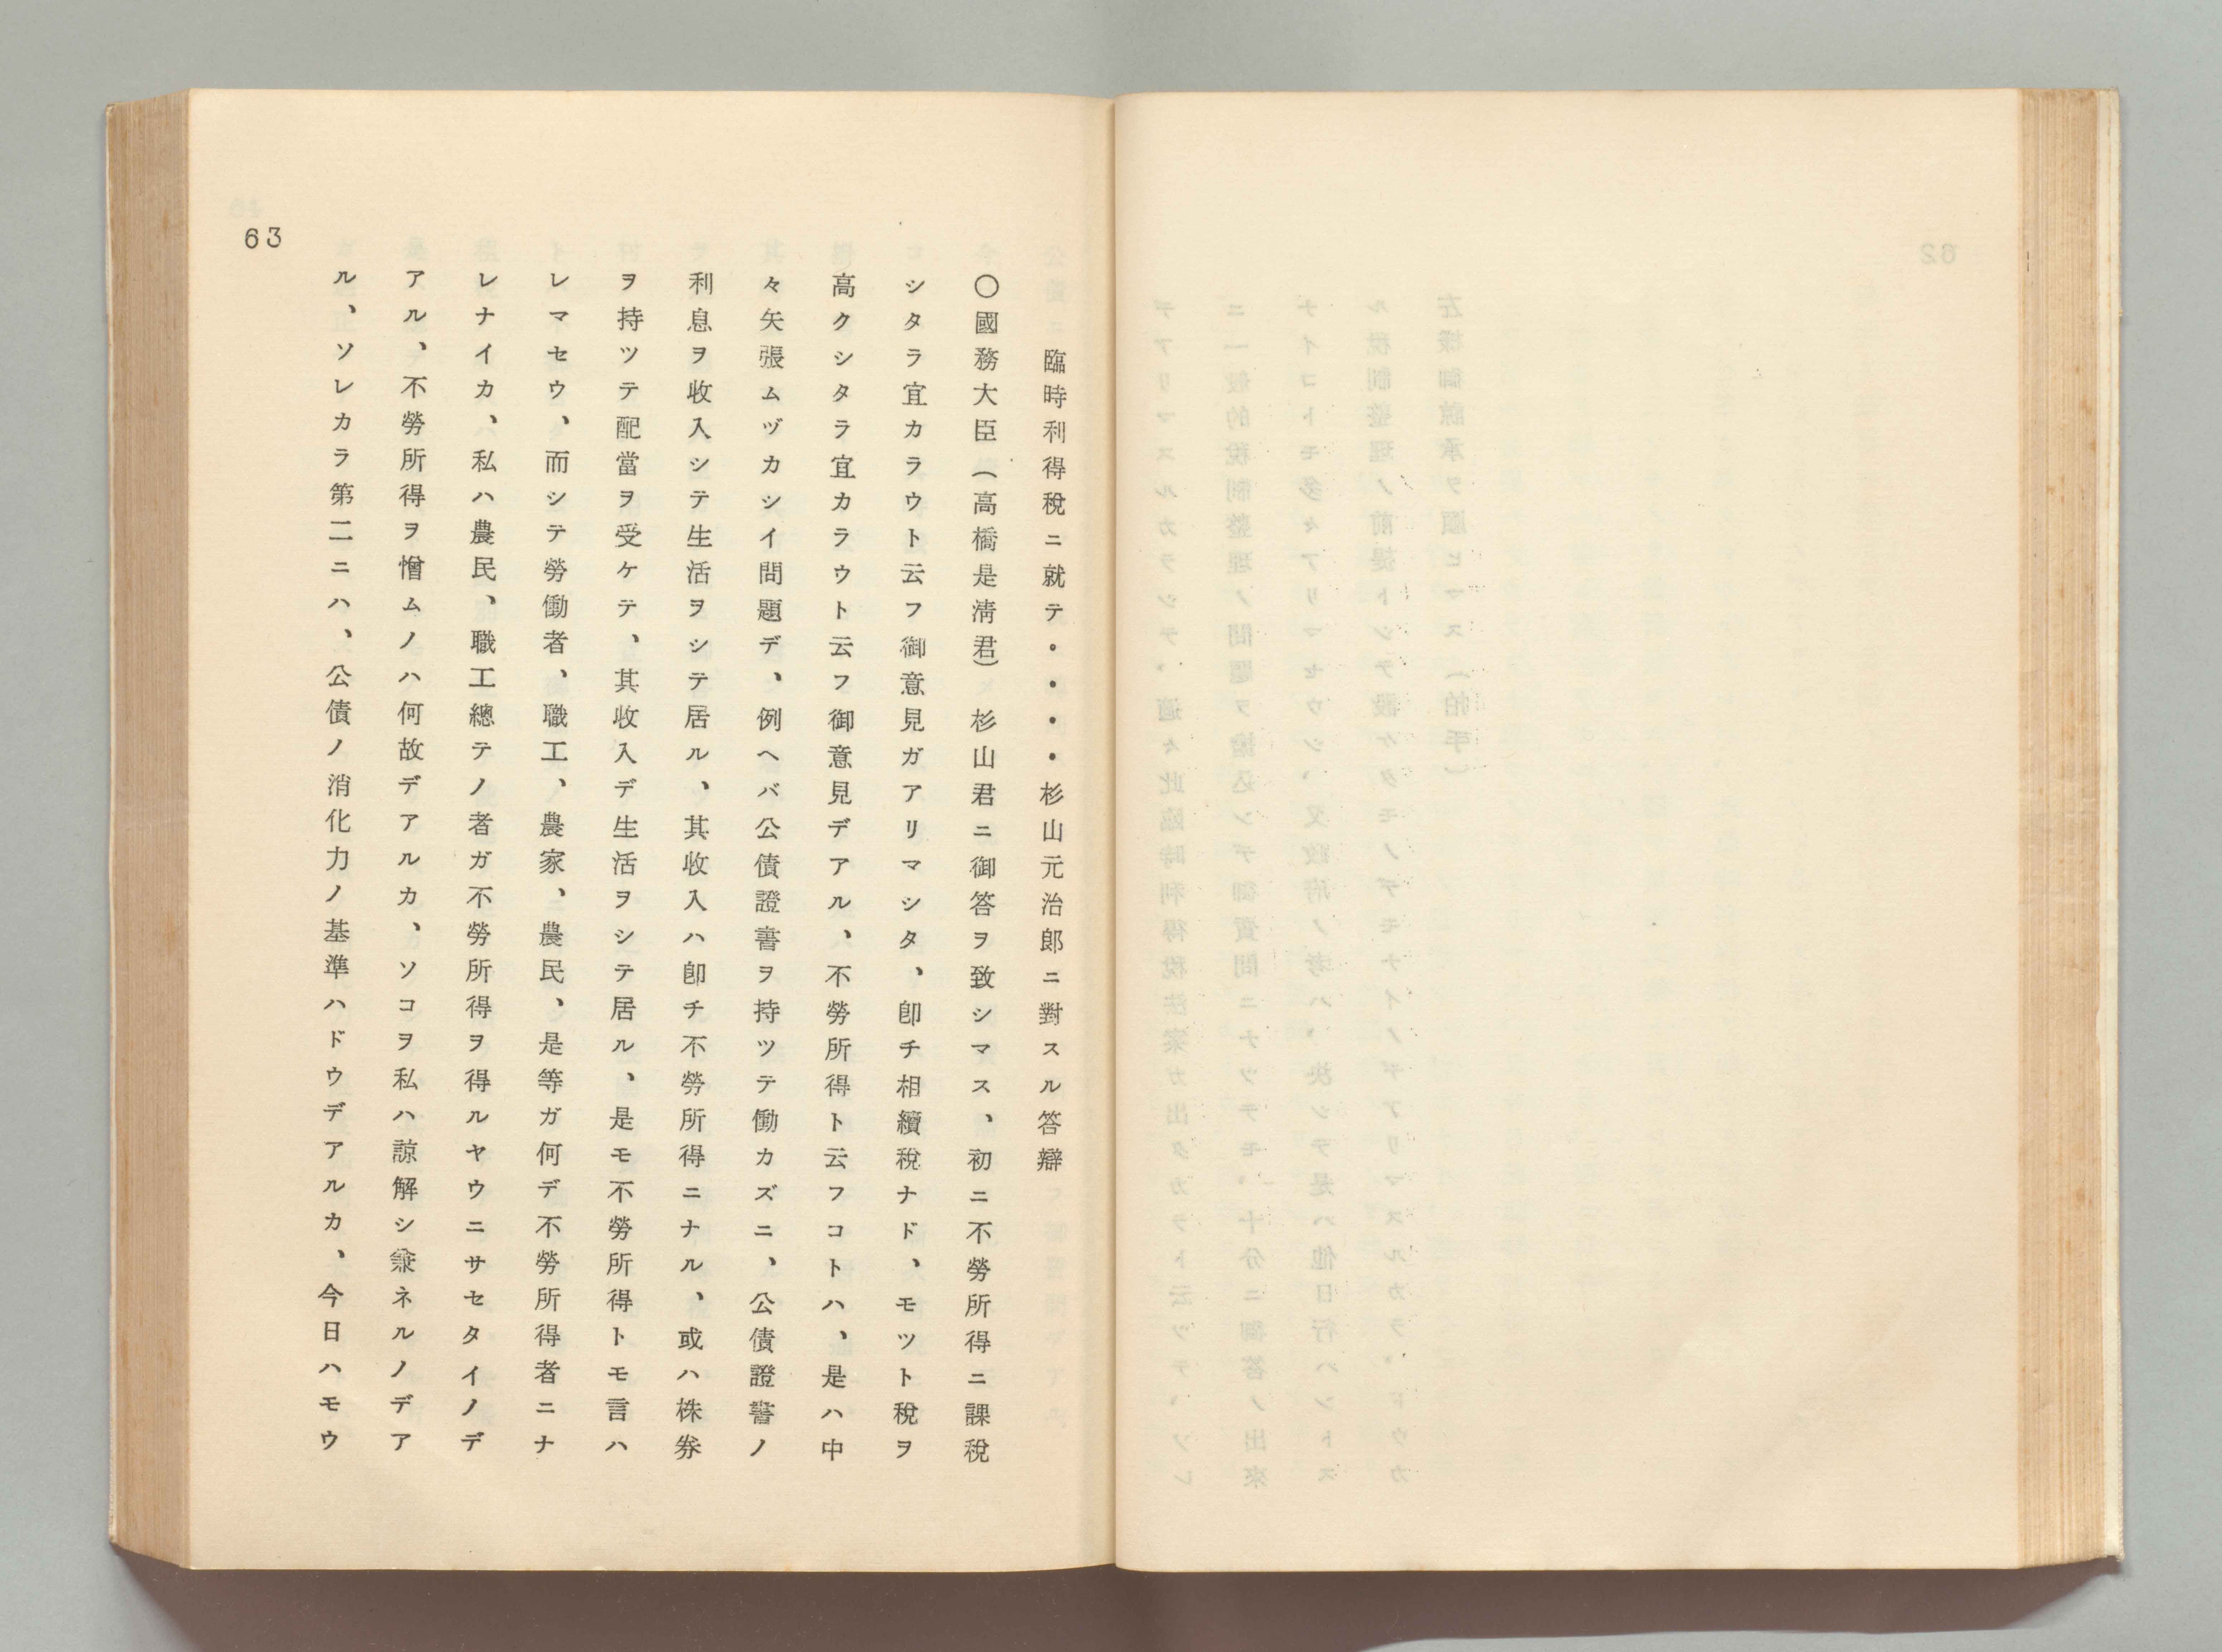 臨時利得稅ニ就テ・・・・杉山元治郎ニ對スル答辯
○國務大臣（高橋是淸君）杉山君ニ御答ヲ致シマス、初ニ不勞所得ニ課稅
シタラ宜カラウト云フ御意見ガアリマシタ、卽チ相續稅ナド、モツト稅ヲ
高クシタラ宜カラウト云フ御意見デアル、不勞所得ト云フコトハ、是ハ中
々矢張ムヅカシイ問題デ、例ヘバ公債證書ヲ持ツテ働カズニ、公債證書ノ
利息ヲ收入シテ生活ヲシテ居ル、其收入ハ卽チ不勞所得ニナル、或ハ株券
ヲ持ツテ配當ヲ受ケテ、其收入デ生活ヲシテ居ル、是モ不勞所得トモ言ハ
レマセウ、而シテ勞働者、職工、農家、農民、是等ガ何デ不勞所得者ニナ
レナイカ、私ハ農民、職工總テノ者ガ不勞所得ヲ得ルヤウニサセタイノデ
アル、不勞所得ヲ憎ムノハ何故デアルカ、ソコヲ私ハ諒解シ兼ネルノデア
ル、ソレカラ第二ニハ、公債ノ消化力ノ基準ハドウデアルカ、今日ハモウ
63